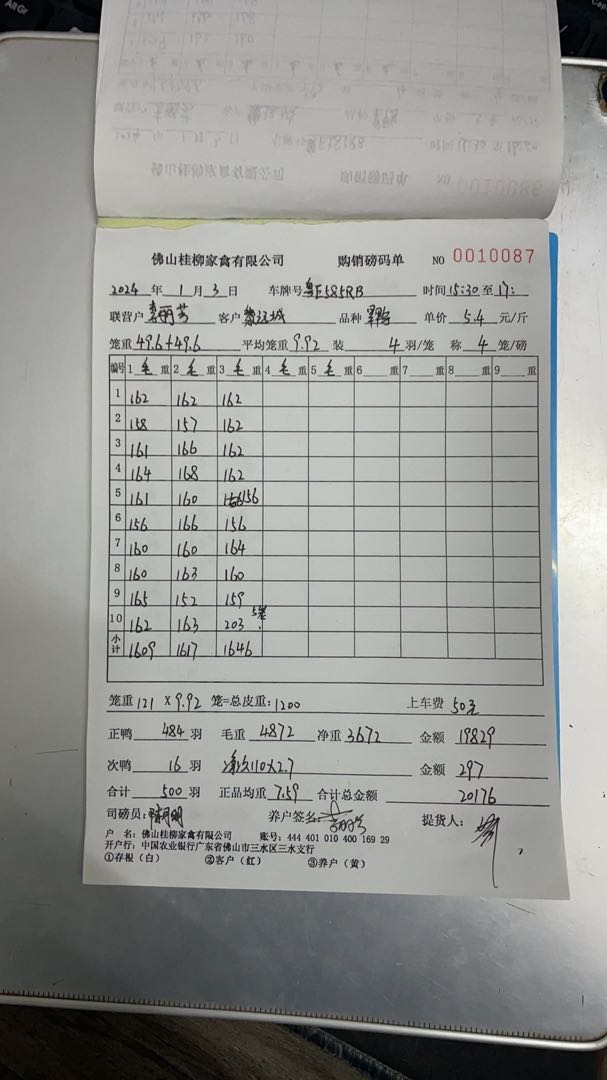 佛山桂柳家禽有限公司 购销磅码单 NO 0010087
2024 年 1 月 3 日 车牌号 粤E585RB 时间 15:30 至 17:
联营户 李丽芳 客户 黎远城 品种 单价 5.4 元/斤
笼重 49.6+49.6 平均笼重 9.92 装 4 羽/笼 称 4 笼/磅
编号 1 毛 重 2 毛 重 3 毛 重 4 毛 重 5 毛 重 6 重 7 重 8 重 9 重
1 162 162 162
2 158 157 162
3 161 166 162
4 164 168 162
5 161 160 156
6 156 166 156
7 160 160 164
8 160 163 160
9 165 152 159
10 162 163 203 5笼
小计 1609 1617 1646
笼重 121 X 9.92 笼=总皮重: 1200 上车费 50元
正鸭 484 羽 毛重 4872 净重 3672 金额 19829
次鸭 16 羽 净次110X2.7 金额 297
合计 500 羽 正品均重 7.59 合计总金额 20176
司磅员: 养户签名: 李丽芳 提货人:
户 名: 佛山桂柳家禽有限公司 账号: 444 401 010 400 169 29
开户行: 中国农业银行广东省佛山市三水区三水支行
①存根（白） ②客户（红） ③养户（黄）